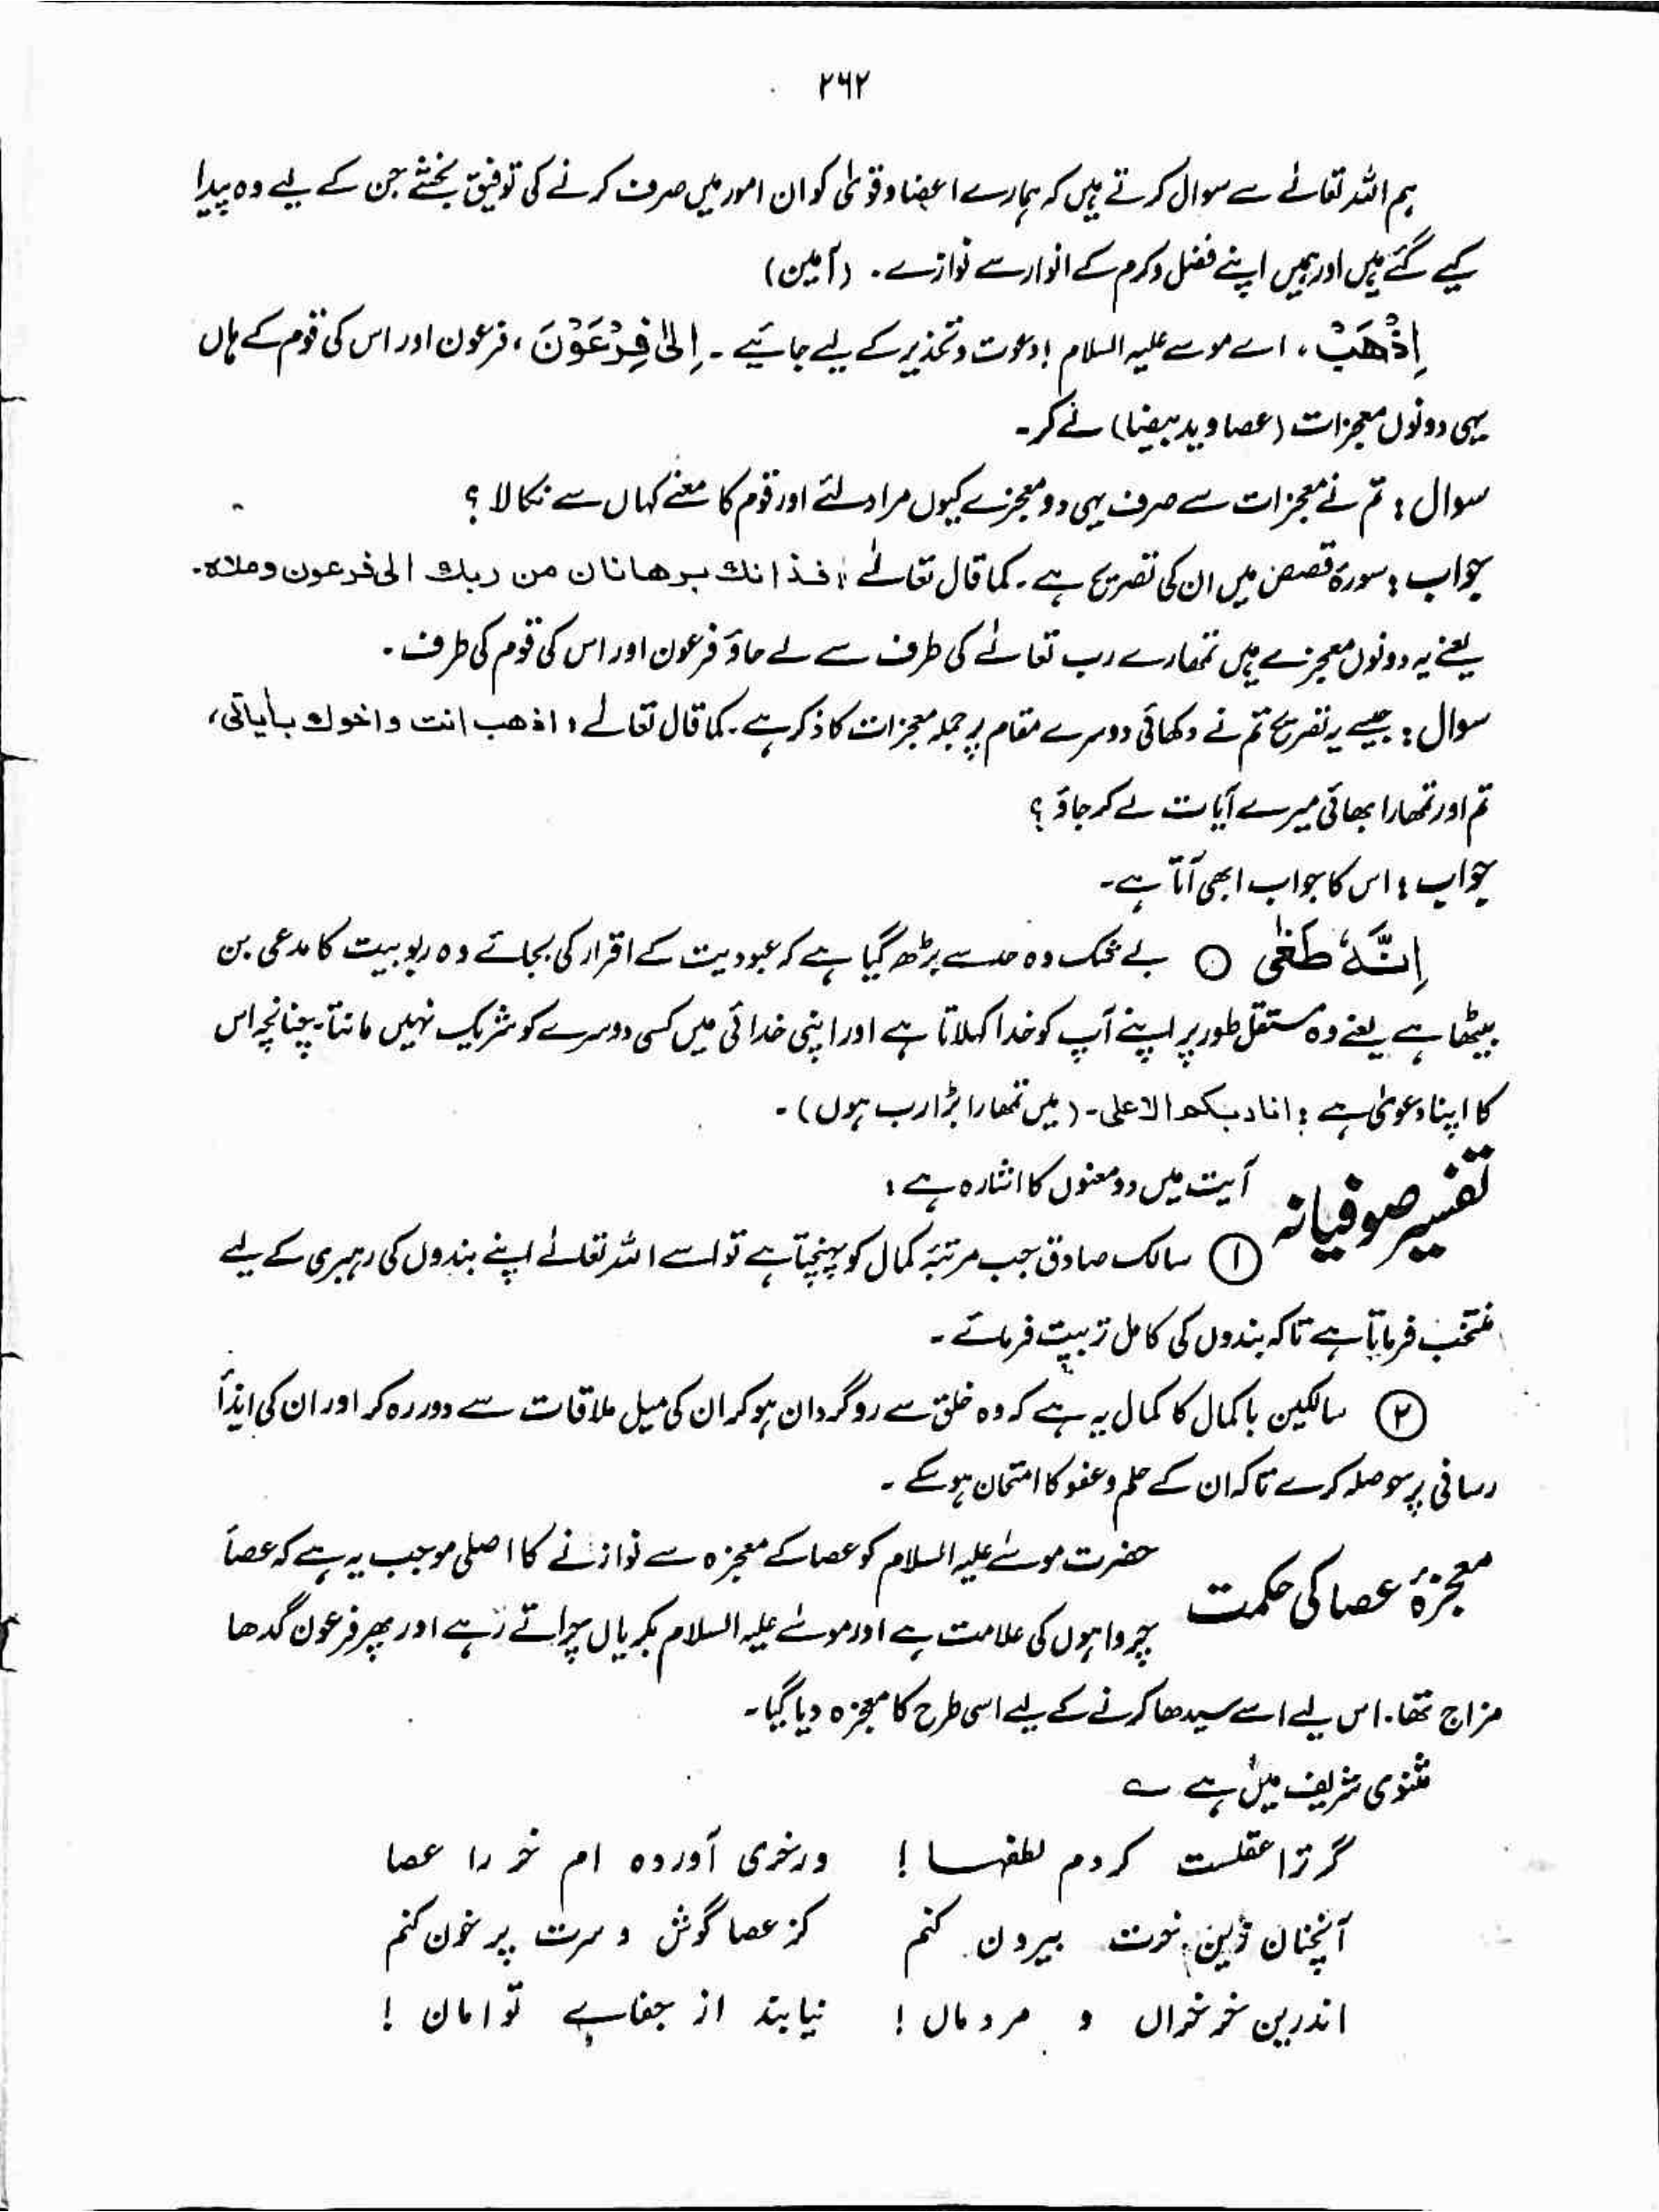 ۲۶۲
ہم اللہ تعالےٰ سے سوال کرتے ہیں کہ ہمارے اعضا و قویٰ کو ان امور میں صرف کرنے کی توفیق بخشے جن کے لیے وہ پیدا
کیے گئے ہیں اور ہمیں اپنے فضل و کرم کے انوار سے نوازے۔ (آمین)
اِذْهَبْ، اے موسے علیہ السلام ! دعوت و تحذیر کے لیے جائیے ۔ اِلىٰ فِرْعَوْنَ، فرعون اور اس کی قوم کے ہاں
یہی دونوں معجزات (عصا و ید بیضا) لے کر۔
سوال : تم نے معجزات سے صرف یہی دو معجزے کیوں مراد لئے اور قوم کا معنے کہاں سے نکالا ؟
جواب : سورۃ قصص میں ان کی تصریح ہے۔ کما قال تعالےٰ : فذانك برهانان من ربك الى فرعون وملاه۔
یعنے یہ دونوں معجزے ہیں تمھارے رب تعالےٰ کی طرف سے لے جاؤ فرعون اور اس کی قوم کی طرف ۔
سوال : جیسے یہ تصریح تم نے دکھائی دوسرے مقام پر جملہ معجزات کا ذکر ہے۔ کما قال تعالےٰ : اذهب انت و اخوك بأياتى،
تم اور تمھارا بھائی میرے آیات لے کر جاؤ ؟
جواب : اس کا جواب ابھی آتا ہے۔
اِنَّهٗ طَغٰى ○ بے شک وہ حد سے بڑھ گیا ہے کہ عبودیت کے اقرار کی بجائے وہ ربوبیت کا مدعی بن
بیٹھا ہے یعنے وہ مستقل طور پر اپنے آپ کو خدا کہلاتا ہے اور اپنی خدائی میں کسی دوسرے کو شریک نہیں مانتا۔ چنانچہ اس
کا اپنا دعویٰ ہے : انا ربكم الاعلى۔ (میں تمھارا بڑا رب ہوں) ۔
تفسیر صوفیانہ آیت میں دو معنوں کا اشارہ ہے :
① سالک صادق جب مرتبۂ کمال کو پہنچتا ہے تو اسے اللہ تعالےٰ اپنے بندوں کی رہبری کے لیے
منتخب فرماتا ہے تاکہ بندوں کی کامل تربیت فرمائے ۔
② سالکین با کمال کا کمال یہ ہے کہ وہ خلق سے روگردان ہو کر ان کی میل ملاقات سے دور رہ کر اور ان کی ایذأ
رسانی پر حوصلہ کرے تاکہ ان کے حلم و عفو کا امتحان ہو سکے ۔
معجزۂ عصا کی حکمت حضرت موسےٰ علیہ السلام کو عصا کے معجزہ سے نوازنے کا اصلی موجب یہ ہے کہ عصا
چرواہوں کی علامت ہے اور موسےٰ علیہ السلام بکریاں چراتے رہے اور پھر فرعون گدھا
مزاج تھا۔ اس لیے اسے سیدھا کرنے کے لیے اسی طرح کا معجزہ دیا گیا۔
مثنوی شریف میں ہے ؎
گر ترا عقلست کردم لطفہا ! ور خری آوردہ ام خر را عصا
آنچنان زین خوت بیرون کنم کز عصا گوش و سرت پر خون کنم
اندرین خر خران و مردمان ! نیابند از جفاے تو امان !